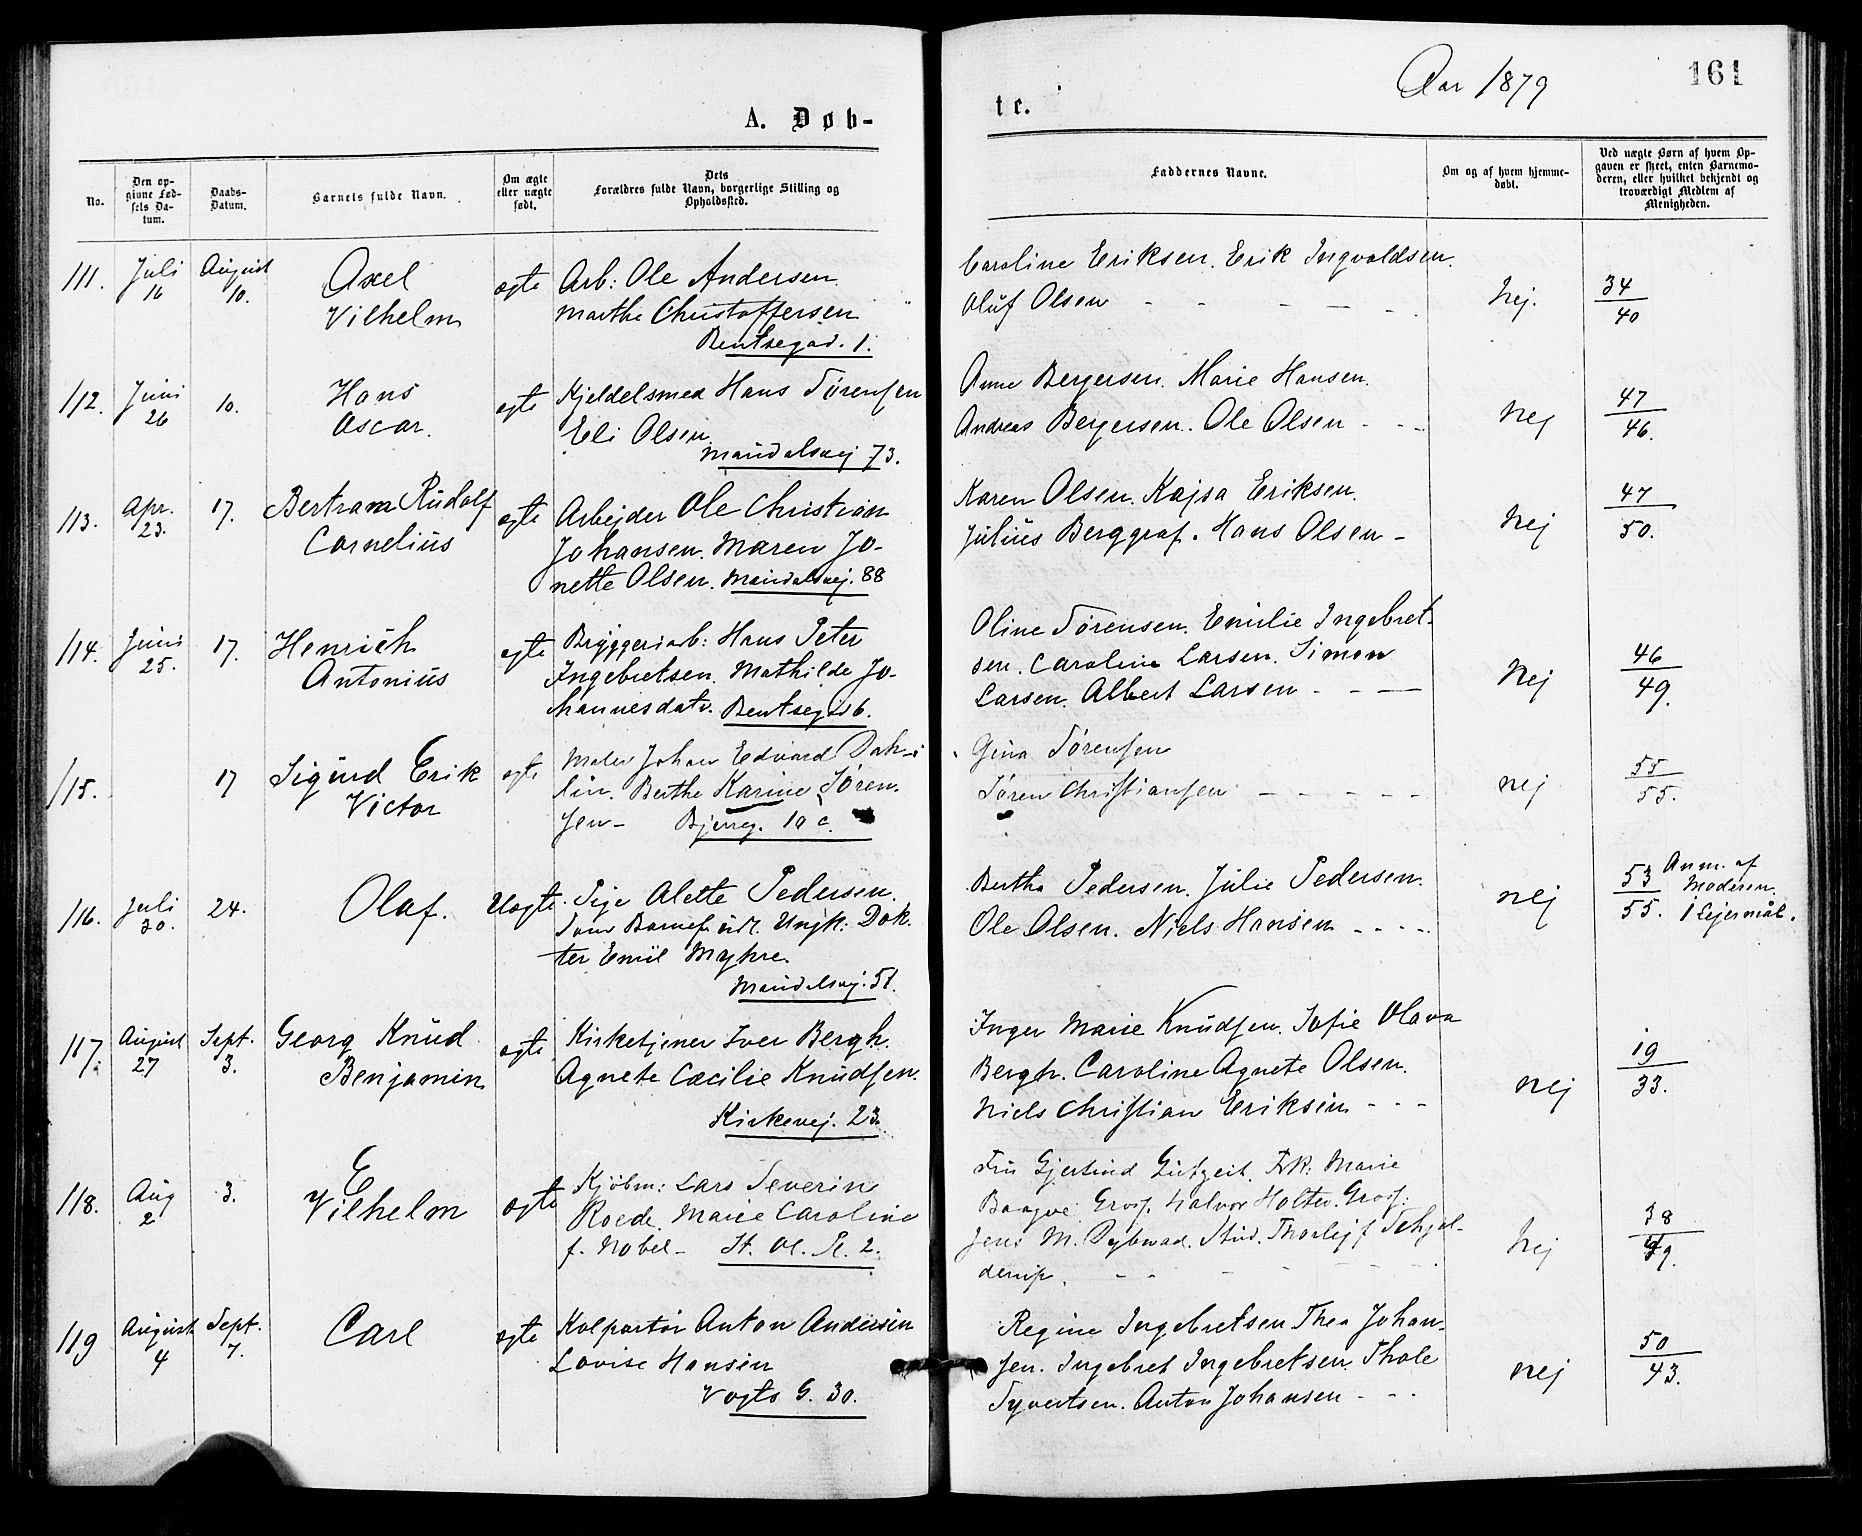 Aar 1879
161
A. Døb-
te.
No.
Den op-
givne Fød-
sels Da-
tum.
Daabs-
Datum.
Barnets fulde Navn.
Om ægte
eller uægte
født.
Dets
Forældres fulde Navn, borgerlige Stilling og
Opholdssted.
Faddernes Navne.
Om og af hvem hjemme-
døbt.
Ved uægte Børn af hvem Op-
gaven er skeet, enten Barnemo-
deren, eller hvilket bekjendt og
troværdigt Medlem af
Menigheden.
111.
Juli
16
August
10.
Axel
Vilhelm
ægte
Arb: Ole Andersen
Marthe Christoffersen
Bentsegad. 1.
Caroline Eriksen. Erik Ingvoldsen.
Oluf Olsen - - - - -
Nej.
34
40
112.
Juni
26
10.
Hans
Oscar.
ægte
Kjeldelsmed Hans Sørensen
Eli Olsen
Maridalsvej 73.
Anne Bergersen. Marie Hansen.
Andreas Bergersen. Ole Olsen - - -
Nej
47
46.
113.
Apr.
23.
17.
Bertram Rudolf
Cornelius
ægte
Arbejder Ole Christian
Johansen. Maren Jo-
nette Olsen. Maridalsvej. 88
Karen Olsen. Kajsa Eriksen.
Julius Berggraf. Hans Olsen -
Nej
47
50.
114.
Juni
25.
17.
Henrich
Antonius
ægte
Bryggeriarb: Hans Peter
Ingebretsen. Mathilde Jo-
hannesdatr. Bentsegd 6.
Oline Sørensen. Emilie Ingebret-
sen. Caroline Larsen. Simon
Larsen. Albert Larsen - - - -
Nej
46
49.
115.
17
Sigurd Erik
Victor
ægte
Maler Johan Edvard Dah-
lin. Berthe Karine Søren-
sen - Bjerreg. 10 c.
Gina Sørensen
Søren Christiansen - - - - -
nej
55
55.
116.
Juli
20.
24.
Olaf.
Uægte
Pige Alette Pedersen.
Som Barnef. udl. Ungk: Dok-
ter Emil Myhre.
Maridalsvej. 51.
Bertha Pedersen. Julie Pedersen.
Ole Olsen. Niels Hansen - - - -
nej
53
55.
Anm. af
Moderen.
1 Lejermål.
117.
August
27
Sept.
3.
Georg Knud
Benjamin
ægte
Kirketjener Iver Bergh.
Agnete Cæcilie Knudsen.
Kirkevej. 23.
Inger Marie Knudsen. Sofie Olava
Bergh. Caroline Agnete Olsen.
Niels Christian Eriksen - - -
nej
19
33.
118.
Aug
2
3.
E
Vilhelm
ægte
Kjøbm: Lars Severin
Roede. Marie Caroline
f. Nobel - St. Ol. Pl. 2.
Fru Gjertrud Gutzeit. Frk: Marie
Baagøe. Gross. Halvor Holter. Gross:
Jens M. Dybwad. Stud. Thorleif Schjel-
derup. - - - - - -
Nej
38
119
August
4
Sept.
7.
Carl
ægte
Kolportør Anton Andersen
Lovise Hansen
Vogts G. 30.
Regine Ingebretsen Thea Johan-
sen. Ingebret Ingebretsen. Thole
Syvertsen. Anton Johansen - - -
nej
50
43.